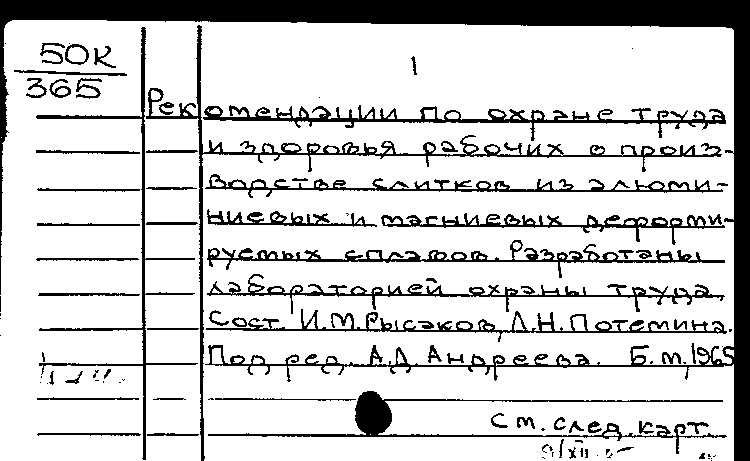 50К
365
1
Рекомендации по охране труда
и здоровья рабочих в произ-
водстве слитков из алюми-
ниевых и магниевых деформи-
руемых сплавов. Разработаны
лабораторией охраны труда.
Сост. И.М.Рысаков, Л.Н.Потемина.
Под ред. А.Д. Андреева. Б.м, 1965
См. след. карт.